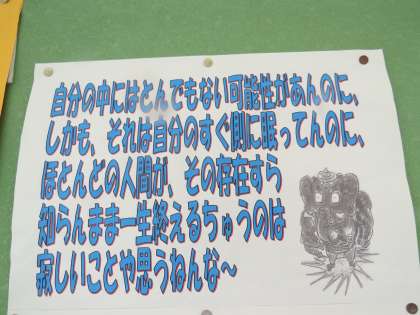 自分の中にはとんでもない可能性があんのに、
しかも、それは自分のすぐ側に眠ってんのに、
ほとんどの人間が、その存在すら
知らんまま一生終えるちゅうのは
寂しいことや思うねんな～